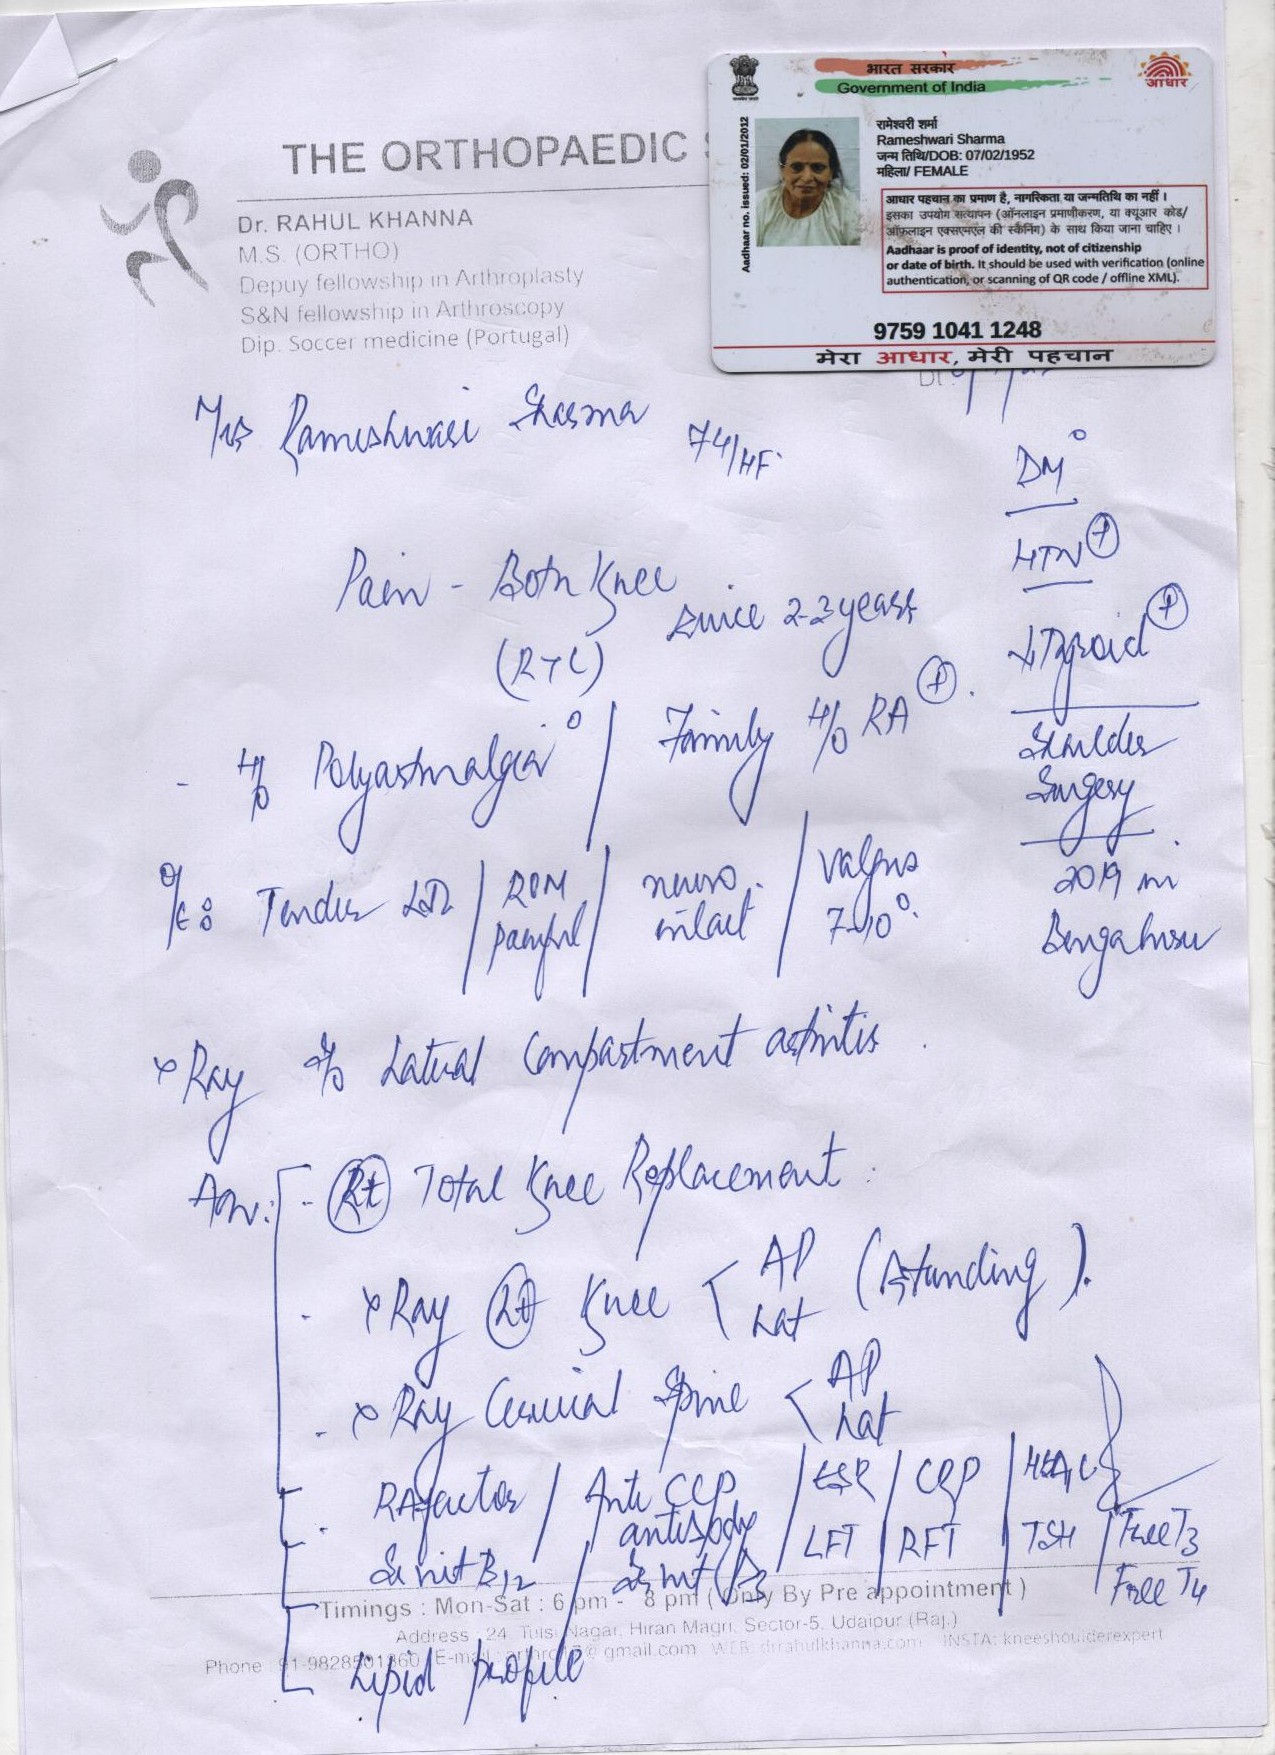 भारत सरकार
Government of India
आधार
Aadhaar no. issued: 02/01/2012
रामेश्वरी शर्मा
Rameshwari Sharma
जन्म तिथि/DOB: 07/02/1952
महिला/ FEMALE
आधार पहचान का प्रमाण है, नागरिकता या जन्मतिथि का नहीं ।
इसका उपयोग सत्यापन (ऑनलाइन प्रमाणीकरण, या क्यूआर कोड/
ऑफ़लाइन एक्सएमएल की स्कैनिंग) के साथ किया जाना चाहिए ।
Aadhaar is proof of identity, not of citizenship
or date of birth. It should be used with verification (online
authentication, or scanning of QR code / offline XML).
9759 1041 1248
मेरा आधार, मेरी पहचान
THE ORTHOPAEDIC
Dr. RAHUL KHANNA
M.S. (ORTHO)
Depuy fellowship in Arthroplasty
S&N fellowship in Arthroscopy
Dip. Soccer medicine (Portugal)
Mrs Rameshwari Sharma 74/
DM°
HTN +
Pain - Both Knee
since 2-3 years
(R+L)
Thyroid +
H/o Polyarthralgia° / Family H/o RA +.
Shoulder
Surgery
2019 in
Bengaluru
O/E: Tender / ROM painful / neuro. intact / valgus 7-10°.
X Ray s/o Lateral Compartment arthritis.
Adv: - Rt Total Knee Replacement.
. X Ray Knee < AP Lat (Standing).
. X Ray Cervical Spine < AP Lat
. RA factor / Anti CCP antibody / ESR / CRP / HbA1c
LFT / RFT / TSH / Free T3
Free T4
Sr vit B12 / Sr vit D3
Timings : Mon-Sat : 6 pm - 8 pm ( Only By Pre appointment )
Address : 24, Tulsi Nagar, Hiran Magri, Sector-5, Udaipur (Raj.)
Phone : 91-9828501360, E-mail : @gmail.com WEB: drrahulkhanna.com INSTA: kneeshoulderexpert
Lipid profile